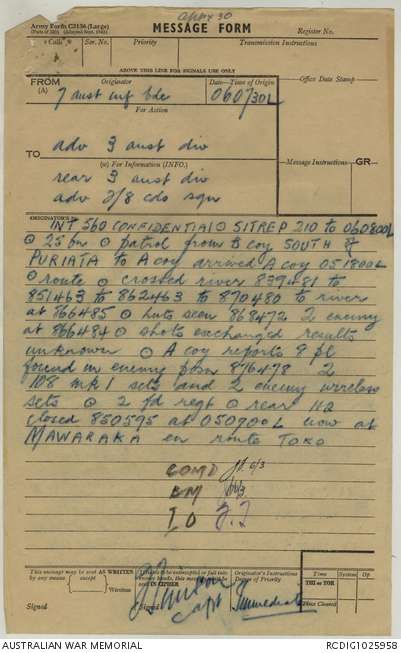 appx 30
Army Form C2136 (Large)
MESSAGE FORM
Register No.
"Calls"
Ser. No.
Priority
Transmission Instructions
ABOVE THIS LINE FOR SIGNALS USE ONLY
FROM
(A)
Originator
Date-Time of Origin
Office Date Stamp
7 aust inf bde
060730L
For Action
TO
adv 3 aust div
(W) For Information (INFO.)
Message Instructions
GR
rear 3 aust div
adv 2/8 cdo sqn
ORIGINATOR'S
INT 560 CONFIDENTIAL ⊙ SITREP 210 to 060800L
⊙ 25 bn ⊙ patrol from B coy SOUTH of
PURIATA to A coy arrived A coy 051800L
⊙ route ⊙ crossed river 839481 to
851463 to 862463 to 870480 to river
at 866485 ⊙ huts seen 868472 2 enemy
at 866484 ⊙ shots exchanged results
unknown ⊙ A coy reports 9 pl
found in enemy posn 876478 2
108 mk 1 sets and 2 enemy wireless
sets ⊙ 2 fd regt ⊙ rear HQ
closed 850595 at 050700L now at
MAWARAKA en route TOKO
COMD 6/3
BM 6/3
IO
This message may be sent AS WRITTEN
by any means
except
Written
IN CIPHER
Originator's Instructions
Degree of Priority
Time
System
Op
THI or TOR
Time Cleared
Signed
Signed
Capt
Immediate
AUSTRALIAN WAR MEMORIAL
RCDIG1025958